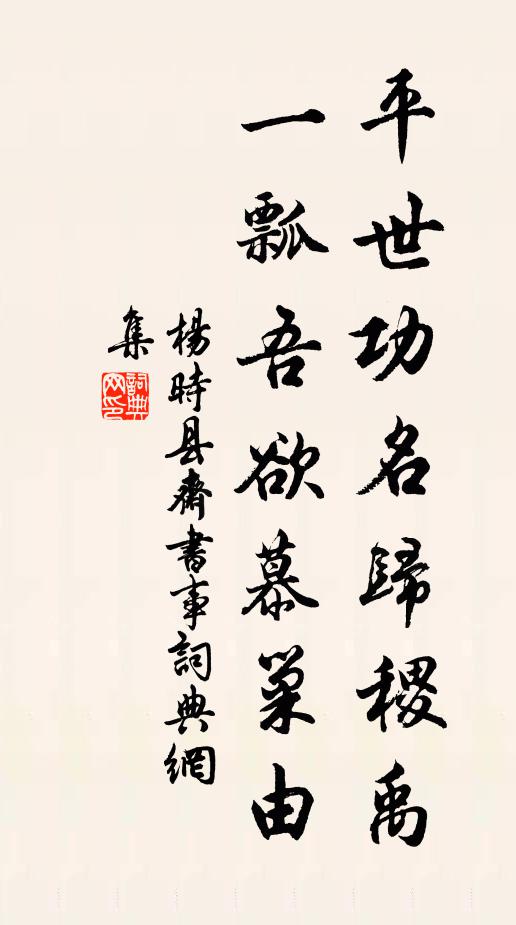 平世功名歸稷禹
一瓢吾欲慕巢由
楊時县齋書事詞典網
集
詞典
网印